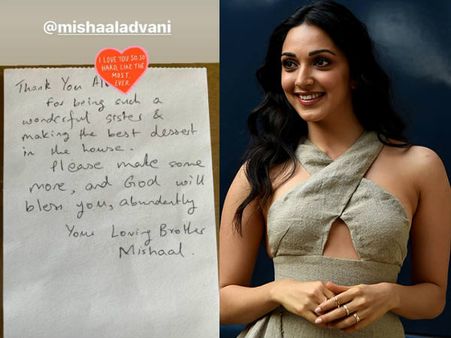 @mishaaladvani
I LOVE YOU SO, SO
HARD, LIKE THE
MOST,
EVER.
Thank You
for being such a
wonderful sister &
making the best dessert
in the house.
Please make some
more, and God will
bless you, abundantly
Your Loving Brother
Mishaal.